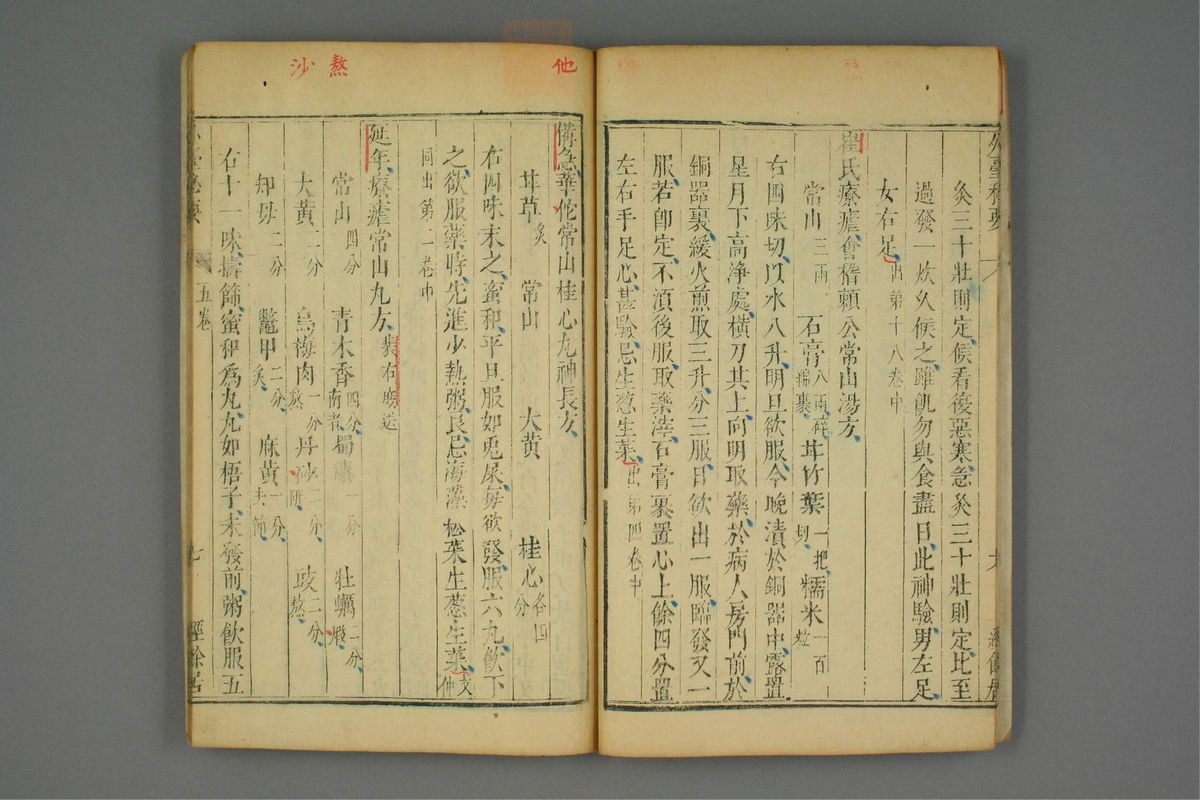 灸三十壯則定候看後惡寒急灸三十壯則定比至
過發一炊久候之雖飢勿與食盡日此神驗男左足
女右足出第十八卷中
崔氏療瘧會稽賴公常山湯方
常山三兩 石膏八兩碎綿裹 茸竹葉一把切 糯米一百粒
右四味切以水八升明旦欲服今晚漬於銅器中露置
星月下高淨處橫刀其上向明取藥於病人房門前於
銅器裏緩火煎取三升分三服日欲出一服臨發又一
服若卽定不須後服取藥滓石膏裹置心上餘四分置
左右手足心甚驗忌生葱生菜出第四卷中
他
備急華佗常山桂心丸神長方
茸草炙 常山 大黃 桂心各四分
右四味末之蜜和平旦服如兎屎每欲發服六丸飲下
之欲服藥時先進少熱粥良忌海藻松菜生葱生菜文仲
同出第一卷中
延年療瘧常山丸方裴右庶送
熬
常山四分 青木香四分南者 蜀漆一分 牡蠣二分煆
沙
大黃二分 烏梅肉一分熬 丹砂二分研 豉二分熬
知母二分 鼈甲二分炙 麻黃一分去節
右十一味擣篩蜜和為丸丸如梧子未發前粥飲服五
五卷
七
經餘居